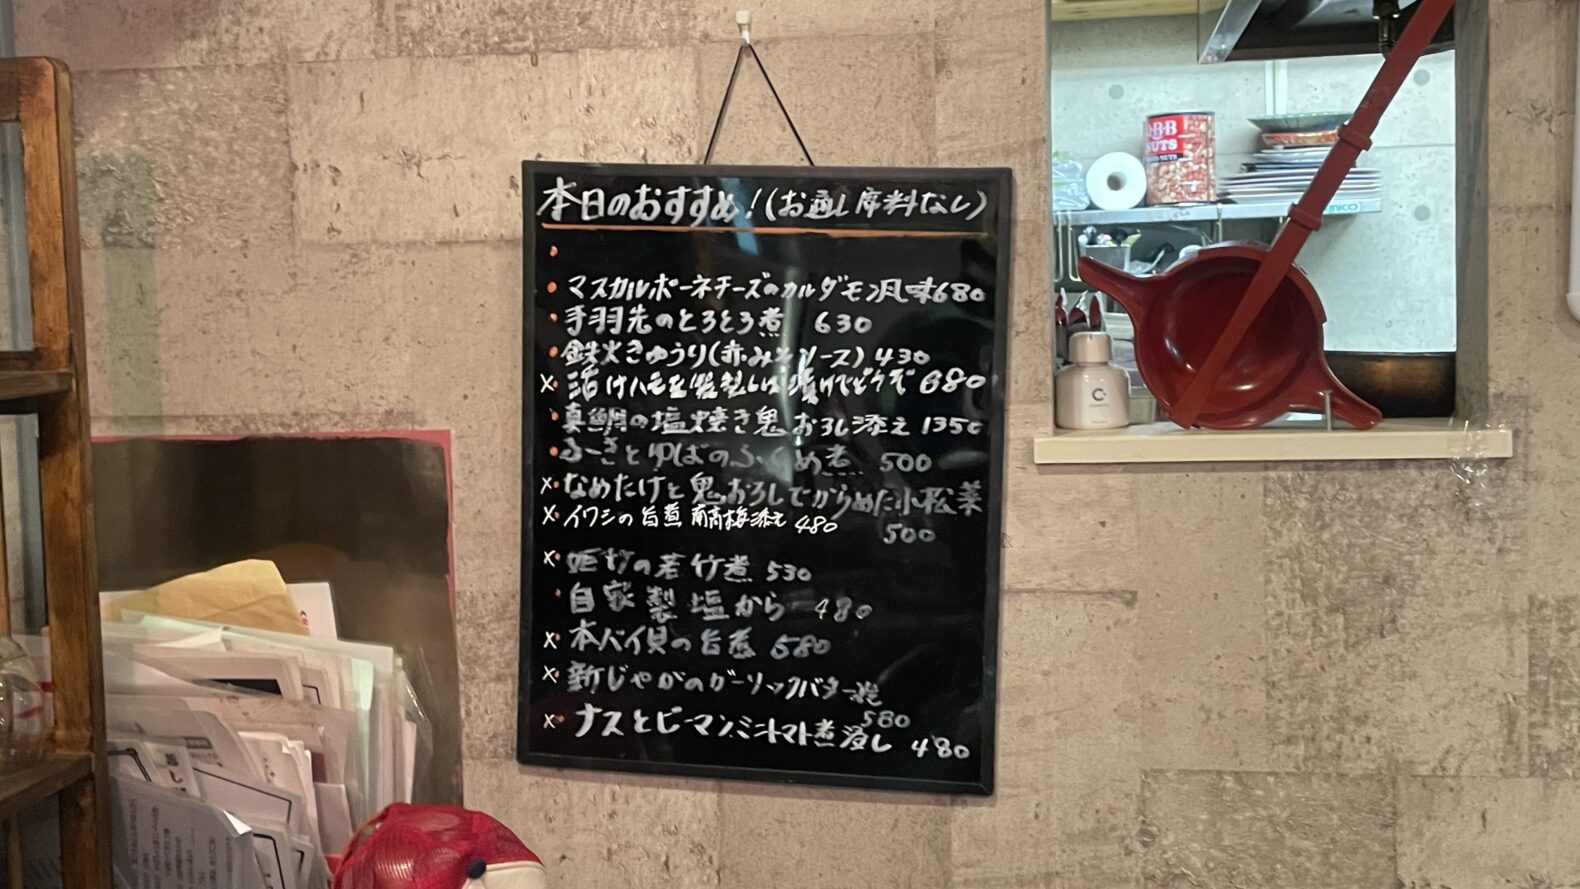 本日のおすすめ!(お通し席料なし)
・マスカルポーネチーズのカルダモン風味680
・手羽先のとろとろ煮 630
・鉄火きゅうり(赤みそソース) 430
680
・真鯛の塩焼き鬼おろし添え 1350
・ふきとゆばのふくめ煮 500
×・なめたけと鬼おろしでからめた小松菜
500
×・イワシの旨煮 南高梅添え 480
×・姫竹の若竹煮 530
・自家製塩から 480
×・本バイ貝の旨煮 580
×・新じゃがのガーリックバター焼
580
×・ナスとピーマンミニトマト煮浸し 480
NUTS